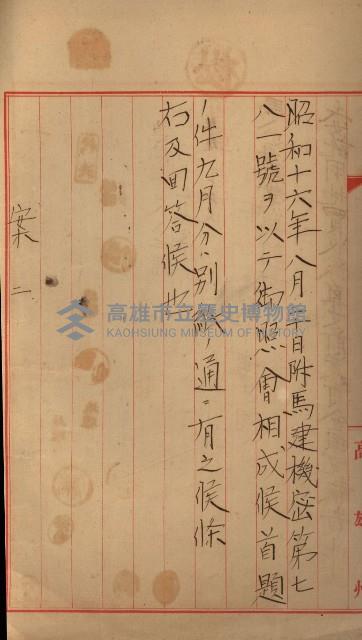 昭和十六年八月 日附馬建機密第七
八一號ヲ以テ御照會相成候首題
ノ件九月分別 通ニ有之候條
右及回答候也
案二
高雄州
高雄市立歷史博物館
KAOHSIUNG MUSEUM OF HISTORY